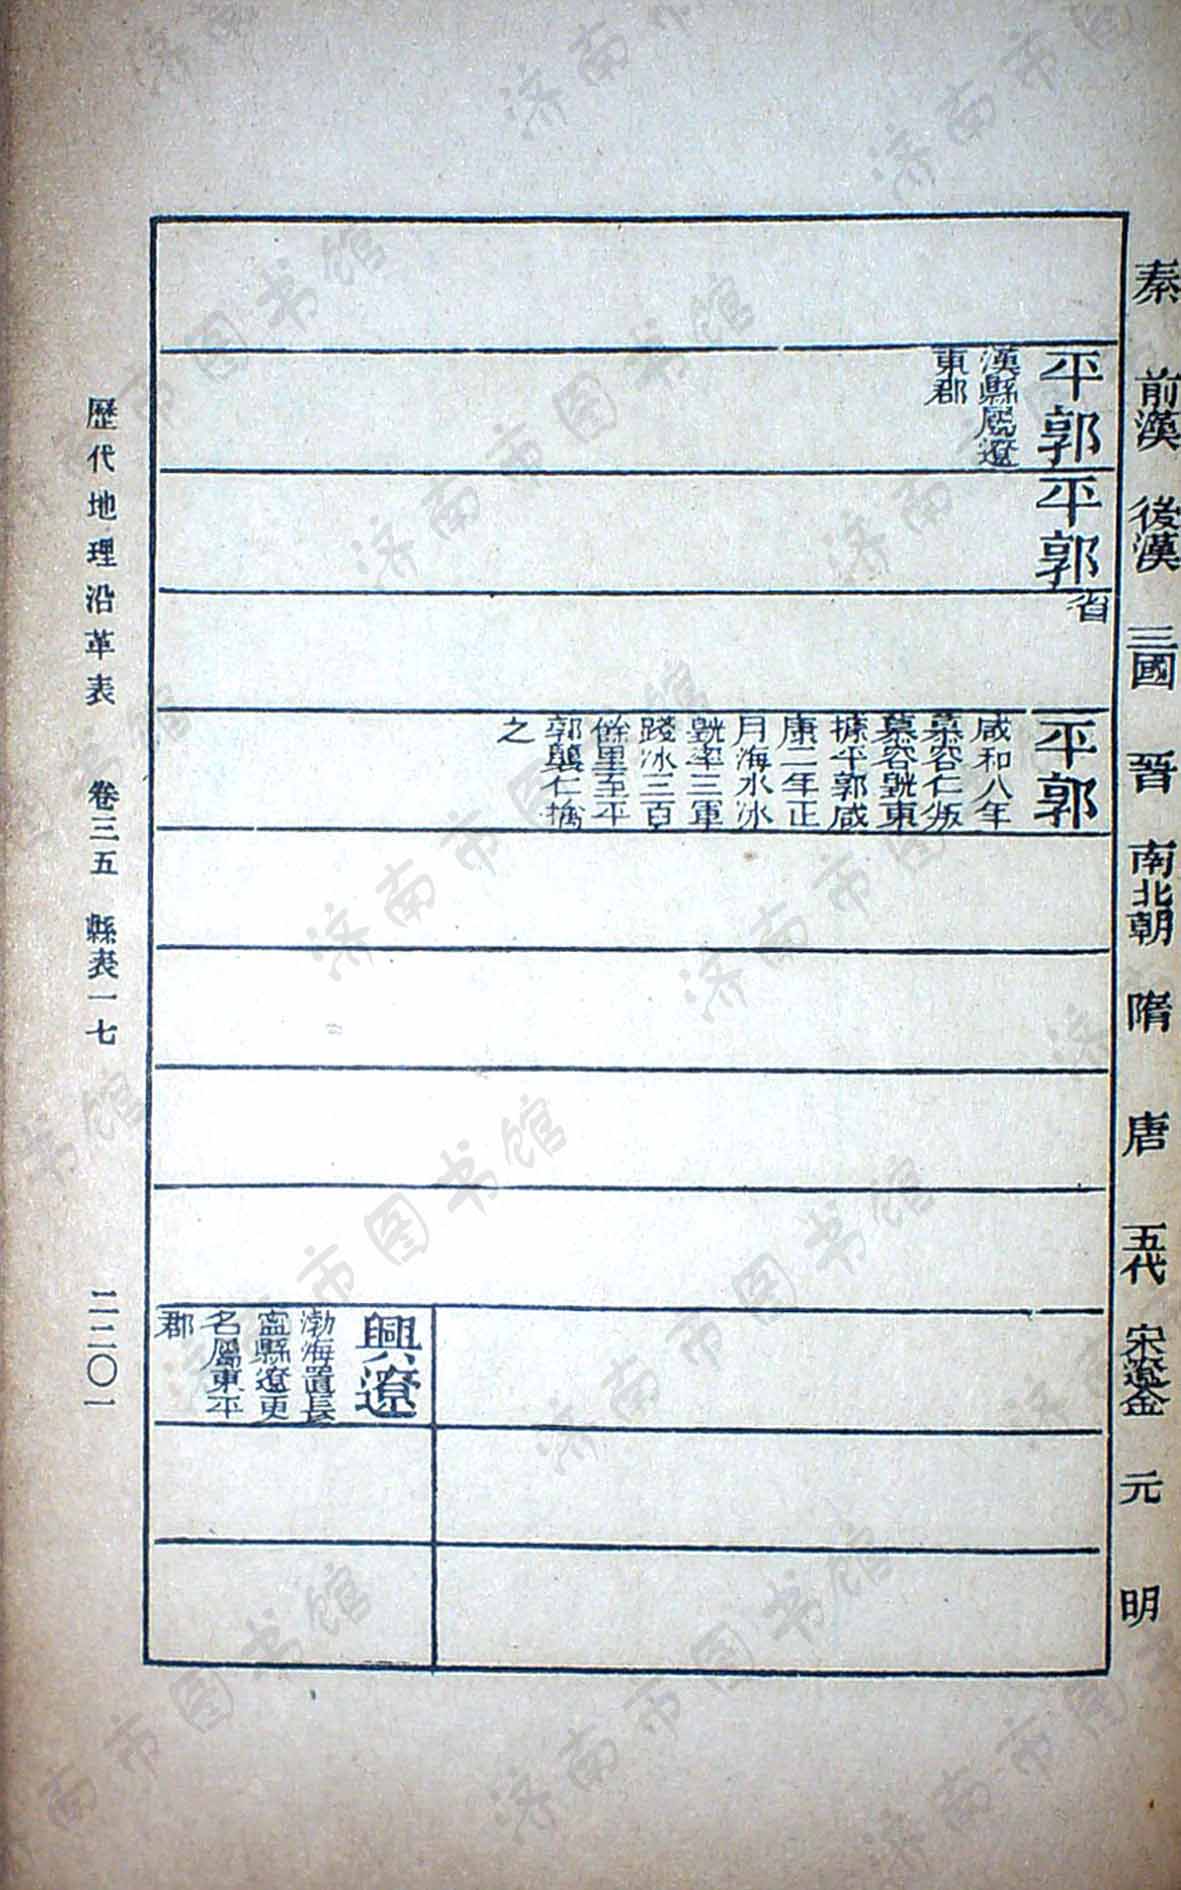 秦
前漢
後漢
三國
晉
南北朝
隋
唐
五代
宋遼金
元
明
平郭
漢縣屬遼
東郡
平郭
省
平郭
咸和八年
慕容仁叛
慕容皝東
據平郭咸
康二年正
月海水冰
皝率三軍
踐冰三百
餘里至平
郭襲仁擒
之
興遼
渤海置長
寧縣遼更
名屬東平
郡
歷代地理沿革表 卷三五 縣表一七 二二〇一
济南市图书馆